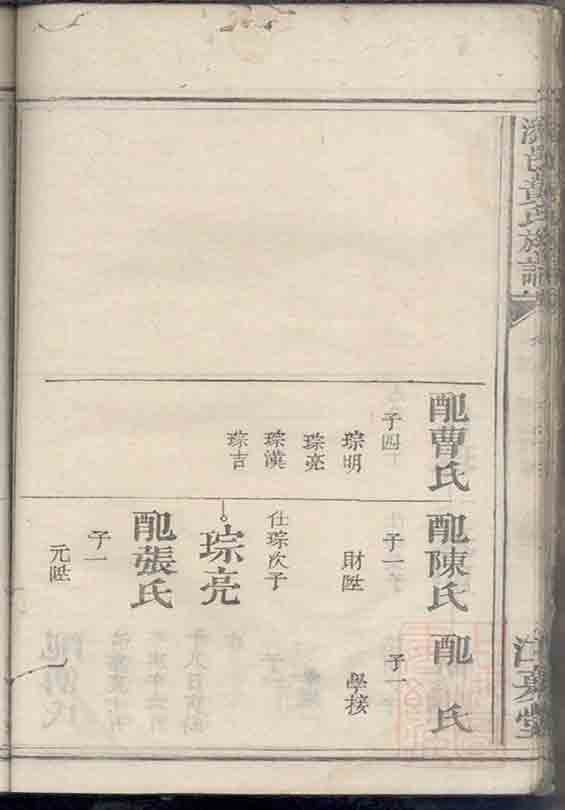 黃氏族譜
配曹氏
子四
琮明
琮亮
琮漢
琮吉
配陳氏
子一
財陞
仕琮次子
琮亮
配張氏
子一
元陞
配 氏
子一
學接
江夏堂